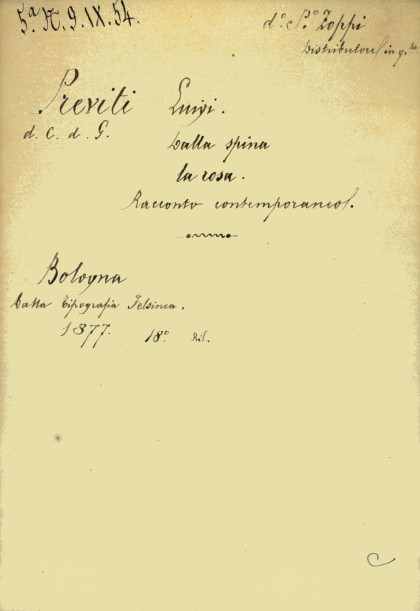 5.ª N. 9. IX. 54.
d.º S.º Zoppi
Distributore in q.ta
Previti Luigi.
d. C. d. G.
Dalla spina
la rosa.
Racconto contemporaneo.
Bologna
Dalla Tipografia Felsinea.
1877. 18º
C